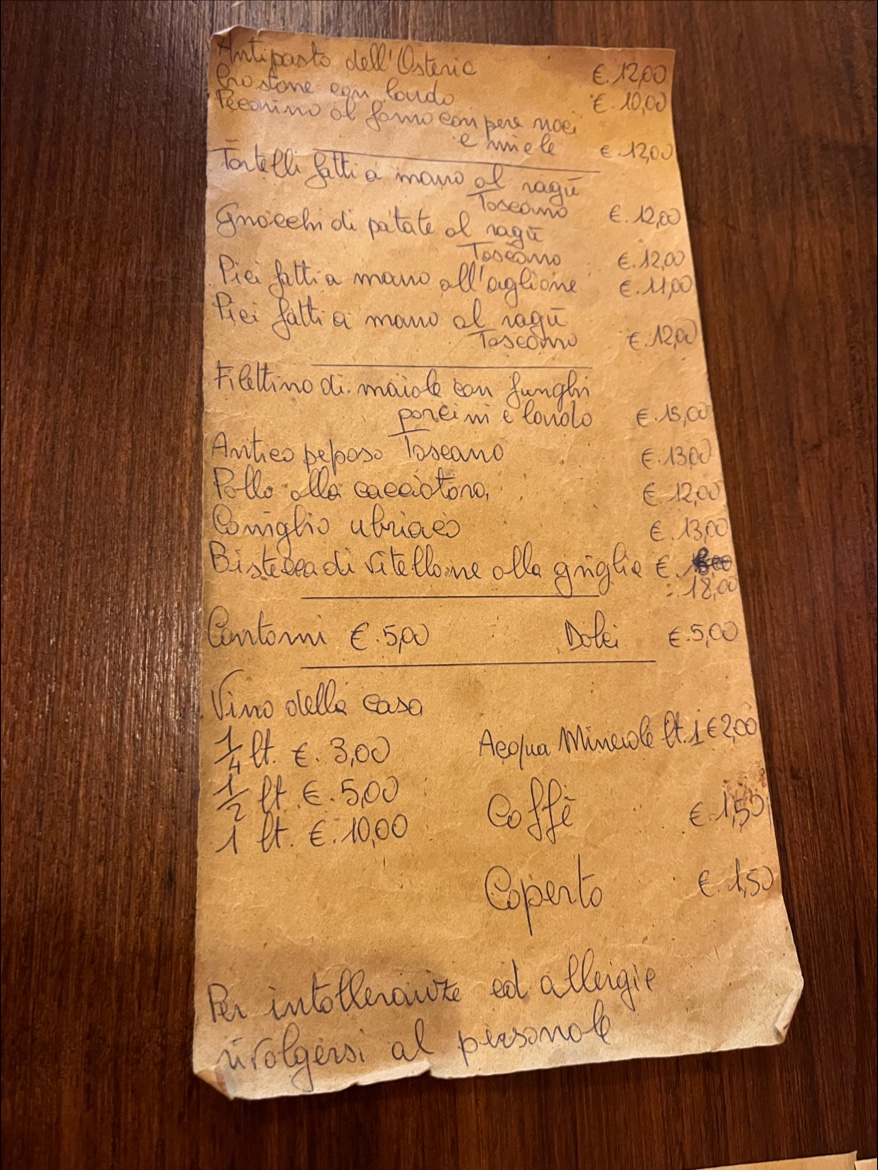 Antipasto dell'Osteria €.12,00
Crostone con lardo €.10,00
Pecorino al forno con pere noci
e miele €.12,00
Tortelli fatti a mano al ragù
Toscano €.12,00
Gnocchi di patate al ragù
Toscano €.12,00
Pici fatti a mano all'aglione €.11,00
Pici fatti a mano al ragù
Toscano €.12,00
Filettino di maiale con funghi
porcini e lardo €.15,00
Antico peposo Toscano €.13,00
Pollo alla cacciatora, €.12,00
Coniglio ubriaco €.13,00
Bistecca di vitellone alla griglia €.
18,00
Contorni €.5,00 Dolci €.5,00
Vino della casa
1/4 lt. €. 3,00 Acqua Minerale lt.1 €2,00
1/2 lt. €. 5,00 Caffè €.1,50
1 lt. €. 10,00
Coperto €.1,50
Per intolleranze ed allergie
rivolgersi al personale